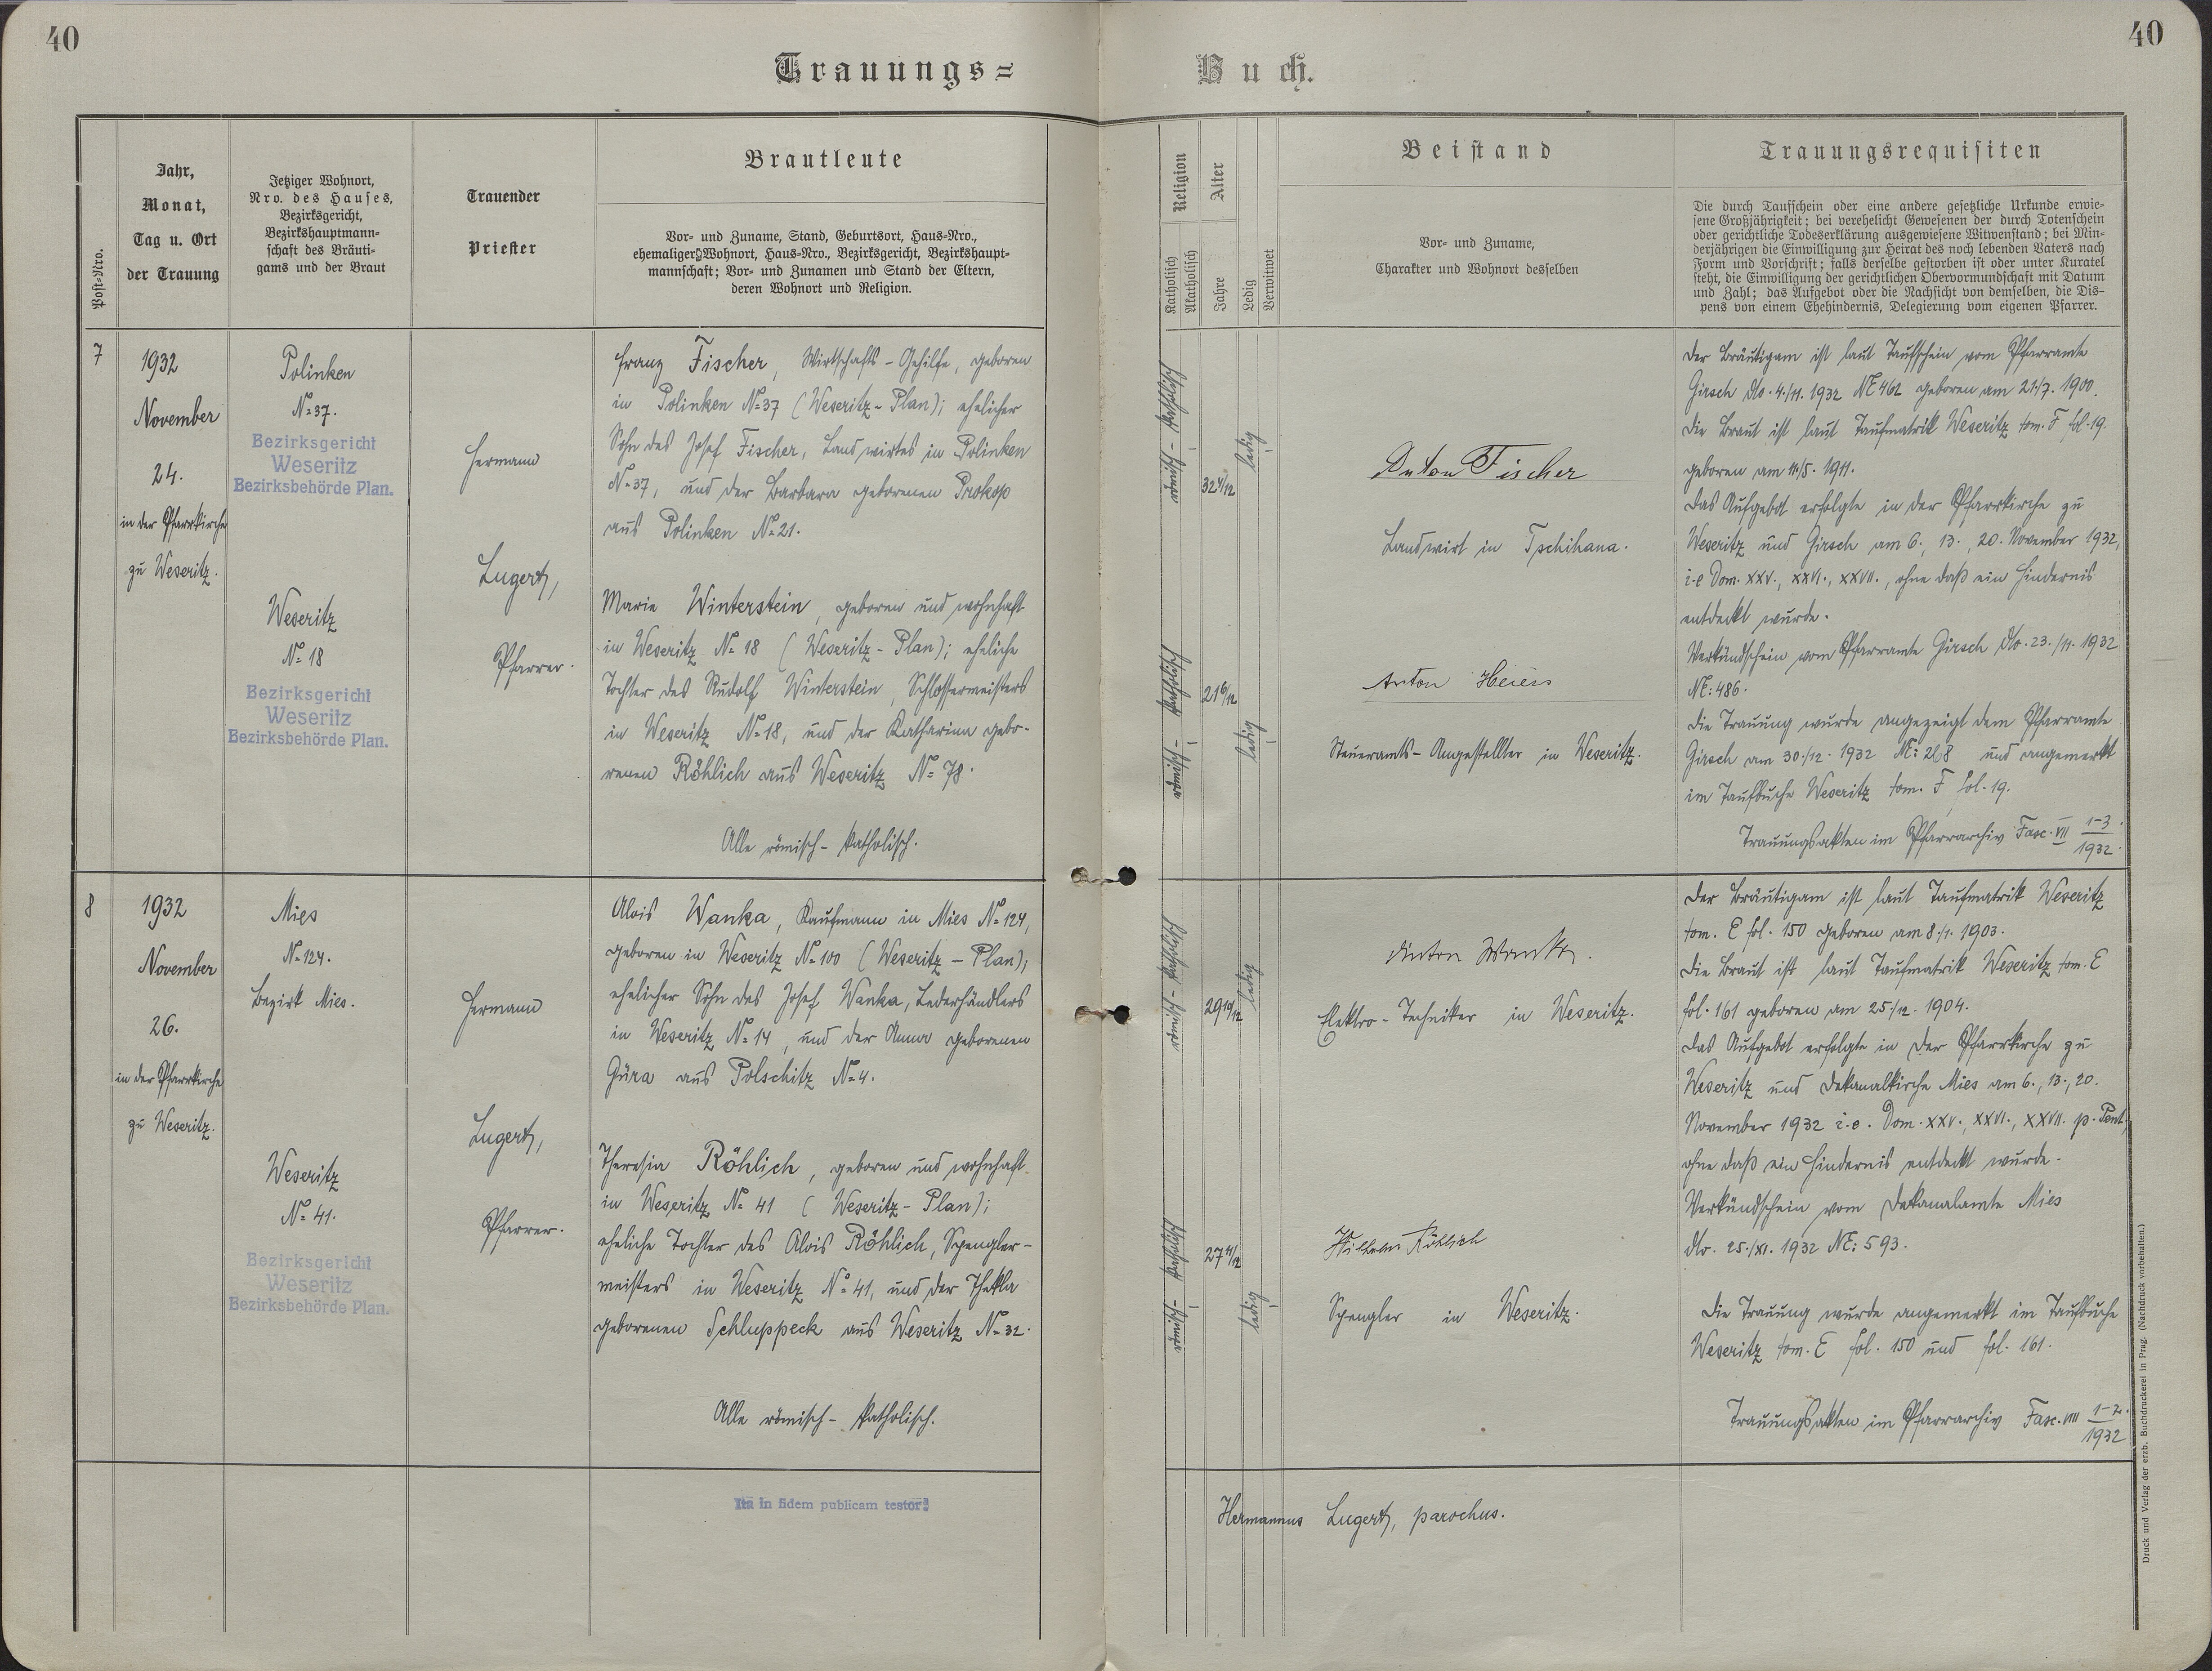 40
40
Trauungs=
Buch.
Post-Nro.
Jahr,
Monat,
Tag u. Ort
der Trauung
Jetziger Wohnort,
Nro. des Hauses,
Bezirksgericht,
Bezirkshauptmann-
schaft des Bräuti-
gams und der Braut
Trauender
Priester
Brautleute
Vor- und Zuname, Stand, Geburtsort, Haus-Nro.,
ehemaliger Wohnort, Haus-Nro., Bezirksgericht, Bezirkshaupt-
mannschaft; Vor- und Zunamen und Stand der Eltern,
deren Wohnort und Religion.
Religion
Katholisch
Akatholisch
Alter
Jahre
Ledig
Verwitwet
Beistand
Vor- und Zuname,
Charakter und Wohnort desselben
Trauungsrequisiten
Die durch Taufschein oder eine andere gesetzliche Urkunde erwie-
sene Großjährigkeit; bei verehelicht Gewesenen der durch Totenschein
oder gerichtliche Todeserklärung ausgewiesene Witwenstand; bei Min-
derjährigen die Einwilligung zur Heirat des noch lebenden Vaters nach
Form und Vorschrift; falls derselbe gestorben ist oder unter Kuratel
steht, die Einwilligung der gerichtlichen Obervormundschaft mit Datum
und Zahl; das Aufgebot oder die Nachsicht von demselben, die Dis-
pens von einem Ehehindernis, Delegierung vom eigenen Pfarrer.
7
1932
November
24.
in der Pfarrkirche
zu Weseritz.
Polinken
N=37.
Bezirksgericht
Weseritz
Bezirksbehörde Plan.
Weseritz
N=18
Bezirksgericht
Weseritz
Bezirksbehörde Plan.
Hermann
Lugert,
Pfarrer.
Franz Fischer, Wirtschafts-Gehilfe, geboren
in Polinken N=37 (Weseritz-Plan); ehelicher
Sohn des Josef Fischer, Landwirtes in Polinken
N=37, und der Barbara geborenen Prokop
aus Polinken N=21.
Marie Winterstein, geboren und wohnhaft
in Weseritz N=18 (Weseritz-Plan); eheliche
Tochter des Rudolf Winterstein, Schlossermeisters
in Weseritz N=18, und der Katharina gebo-
renen Röhlich aus Weseritz N=78.
Alle römisch-katholisch.
römisch-katholisch
32 4/12
ledig
römisch-katholisch
21 6/12
ledig
Anton Fischer
Landwirt in Tschihana.
Anton
Steueramts-Angestellter in Weseritz.
Der Bräutigam ist laut Taufschein vom Pfarramte
Girsch dto. 4./11. 1932 NE 462 geboren am 21./7. 1900.
Die Braut ist laut Taufmatrik Weseritz tom. F fol. 19.
geboren am 11/5. 1911.
Das Aufgebot erfolgte in der Pfarrkirche zu
Weseritz und Girsch am 6., 13., 20. November 1932,
i.e Dom. XXV., XXVI., XXVII., ohne daß ein Hindernis
entdeckt wurde.
Verkündschein vom Pfarramte Girsch dto. 23./11. 1932
NE: 486.
Die Trauung wurde angezeigt dem Pfarramte
Girsch am 30./12. 1932 NE: 268 und angemerkt
im Taufbuche Weseritz tom. F fol. 19.
Trauungsakten im Pfarrarchiv Fasc. VII 1-3/1932.
8
1932
November
26.
in der Pfarrkirche
zu Weseritz.
Mies
N=124.
Bezirk Mies.
Weseritz
N=41.
Bezirksgericht
Weseritz
Bezirksbehörde Plan.
Hermann
Lugert,
Pfarrer.
Alois Wanka, Kaufmann in Mies N=124,
geboren in Weseritz N=100 (Weseritz-Plan);
ehelicher Sohn des Josef Wanka, Lederhändlers
in Weseritz N=14, und der Anna geborenen
Güra aus Polschitz N=4.
Theresia Röhlich, geboren und wohnhaft
in Weseritz N=41 (Weseritz-Plan);
eheliche Tochter des Alois Röhlich, Spengler-
meisters in Weseritz N=41, und der Thekla
geborenen Schluppeck aus Weseritz N=32.
Alle römisch-katholisch.
römisch-katholisch
29 10/12
ledig
römisch-katholisch
27 11/12
ledig
Anton Wanka.
Elektro-Techniker in Weseritz.
Wilhelm Röhlich
Spengler in Weseritz.
Der Bräutigam ist laut Taufmatrik Weseritz
tom. E fol. 150 geboren am 8./1. 1903.
Die Braut ist laut Taufmatrik Weseritz tom. E
fol. 161 geboren am 25./12. 1904.
Das Aufgebot erfolgte in der Pfarrkirche zu
Weseritz und Dekanalkirche Mies am 6., 13., 20.
November 1932 i.e. Dom. XXV., XXVI., XXVII. p. Pent.,
ohne daß ein Hindernis entdeckt wurde.
Verkündschein vom Dekanalamte Mies
dto. 25./XI. 1932 NE: 593.
Die Trauung wurde angemerkt im Taufbuche
Weseritz tom. E fol. 150 und fol. 161.
Trauungsakten im Pfarrarchiv Fasc. VIII 1-2./1932
Ita in fidem publicam testor:
Hermannus Lugert, parochus.
Druck und Verlag der erzb. Buchdruckerei in Prag. (Nachdruck vorbehalten.)